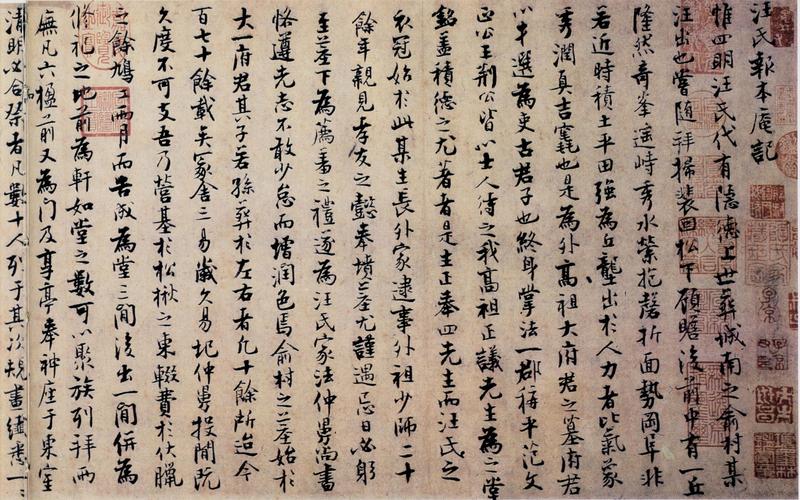 汪氏報本庵記
惟四明汪氏代有隱德上世葬城南之俞村某
汪出也嘗随拜掃裴回松下顧瞻後前中有一丘
隆然奇峯遥峙秀水縈抱磬折面勢岡阜非
若近時積土平田強為丘壟出於人力者比氣象
秀潤真吉竁也是為外高祖大府君之墓府君
以才選為吏古君子也終身掌法一郡稱平范文
正公王荆公皆以士人待之我高祖正議先生為之
銘盖積德之尤著者是生正奉四先生而汪氏之
衣冠始於此某生長外家逮事外祖少師二十
餘年親見孝友之懿奉墳墓尤謹遇忌日必躬
至墓下為薦羞之禮遂為汪氏家法仲舅尚書
恪遵先志不敢少怠而增潤色焉俞村之墓始於
大一府君其子若孫葬於左右者凡十餘所迨今
百七十餘載矣冢舍三易歲久易圮仲舅投閒既
久度不可支吾乃營基於松楸之東輟費於伏臘
之餘鳩工兩月而告成為堂三間後出一間併為
脩祀之地前為軒如堂之數可以聚族列拜兩
廡凡六楹前又為門及享亭奉神座于東室
清明必合祭者凡數十人列于其次規畫纎悉一一